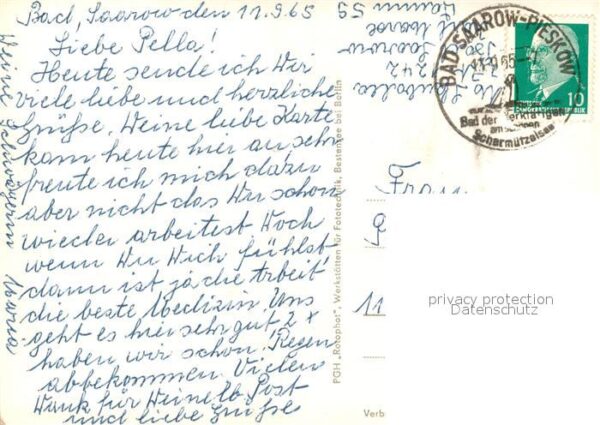 Bad, Saarow den 11.9.65
Liebe Pella!
Heute sende ich Dir
viele liebe und herzliche
Grüße. Deine liebe Karte
kam heute hier an sehr
freute ich mich dazu
aber nicht das Du schon
wieder arbeitest Doch
wenn Du Dich fühlst
dann ist ja die Arbeit
die beste Medizin. Uns
geht es hier sehr gut 2 x
haben wir schon Regen
abbekommen. Vielen
Dank für Deine lb. Post
und liebe Grüße
Deine Schwägerin Maria
PGH „Rotophot“, Werkstätten für Fototechnik, Bestensee bei Berlin
BAD SAAROW-PIESKOW
11.9.65
Bad der Werktätigen
am schönen
Scharmützelsee
10
Saarow
242
Zimm 59
Frau
11
privacy protection
Datenschutz
Verb